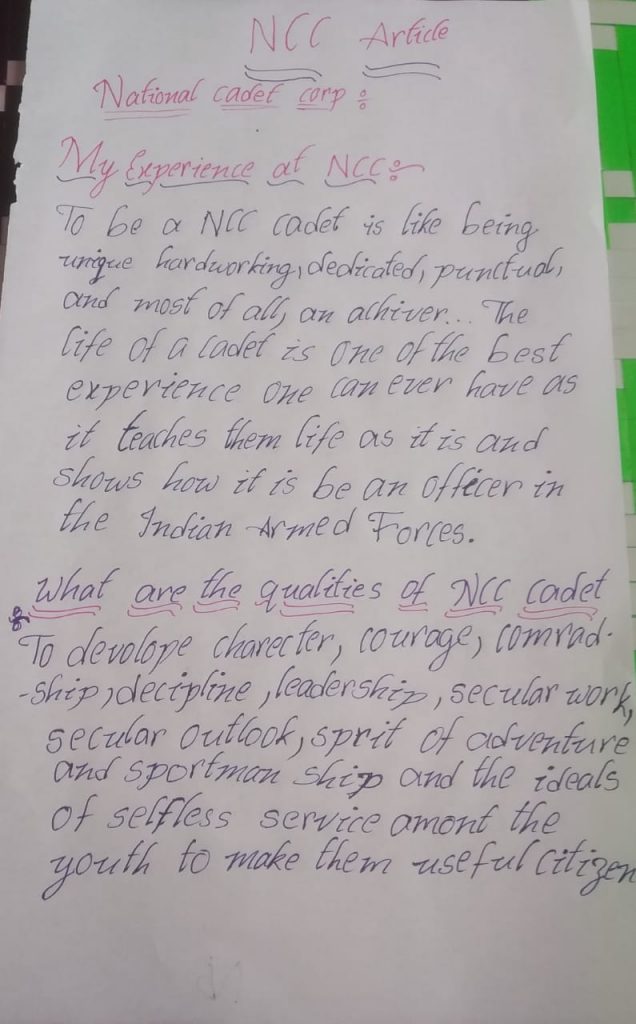 NCC Article
National cadet corp :
My Experience at NCC :
To be a NCC cadet is like being
unique hardworking, dedicated, punctual,
and most of all, an achiver... The
life of a cadet is one of the best
experience one can ever have as
it teaches them life as it is and
shows how it is be an officer in
the Indian Armed Forces.
What are the qualities of NCC cadet
To devolope charecter, courage, comrad-
-ship, decipline, leadership, secular work,
secular outlook, sprit of adventure
and sportman ship and the ideals
of selfless service amont the
youth to make them useful citizen